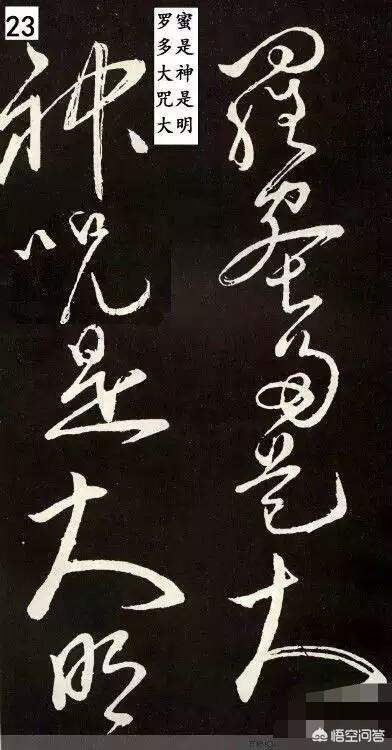 23
罗蜜
多是
大神
咒是
大明
羅蜜多是大
神咒是大明
悟空问答